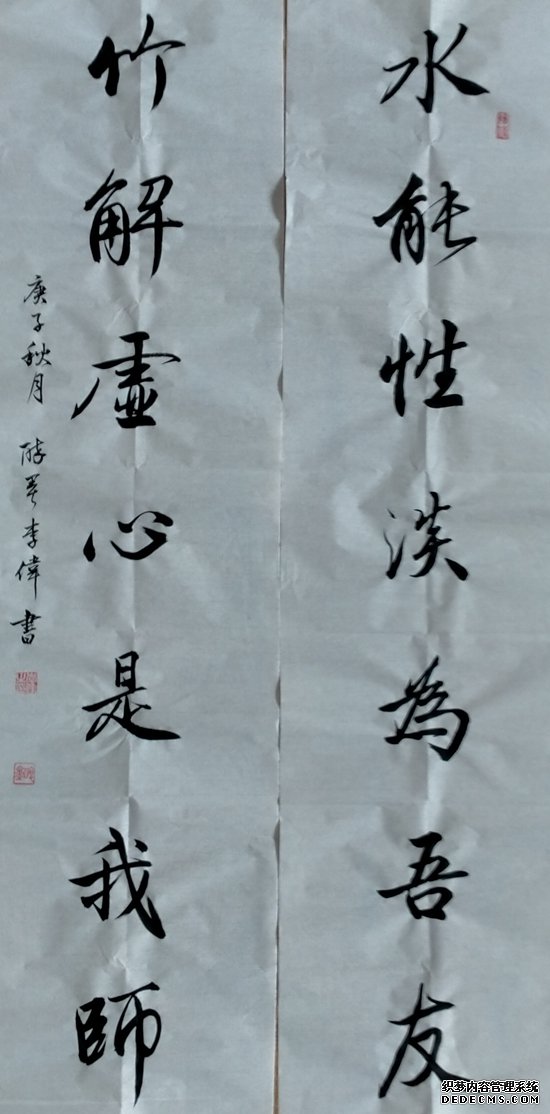 水能性淡為吾友
竹解虛心是我師
庚子秋月
李偉書
织梦内容管理系统
DEDECMS.COM